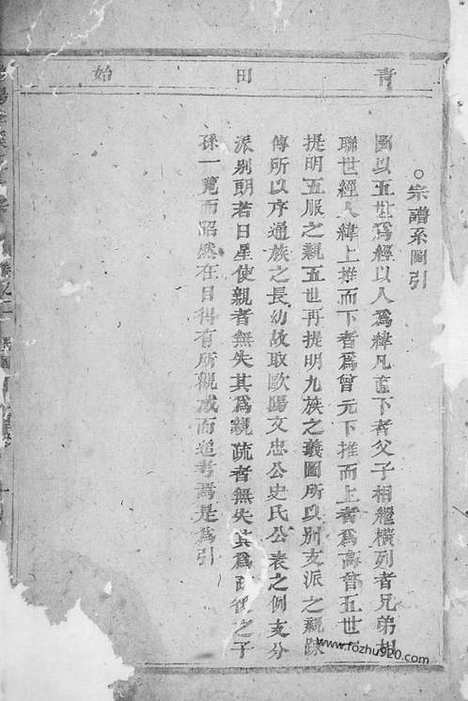 青田始
○宗譜系圖引
圖以五世爲經以人爲緯凡直下者父子相繼橫列者兄弟相
聯世經人緯上推而下者爲曾元下推而上者爲高曾五世一
提明五服之親五世再提明九族之義圖所以別支派之親疎
傳所以序通族之長幼故取歐陽文忠公史氏公表之例支分
派別朗若日星使親者無失其爲親疏者無失其爲疏後之子
孫一覽而昭然在目得有所親戚而追考焉是爲引
www.fozhu920.com